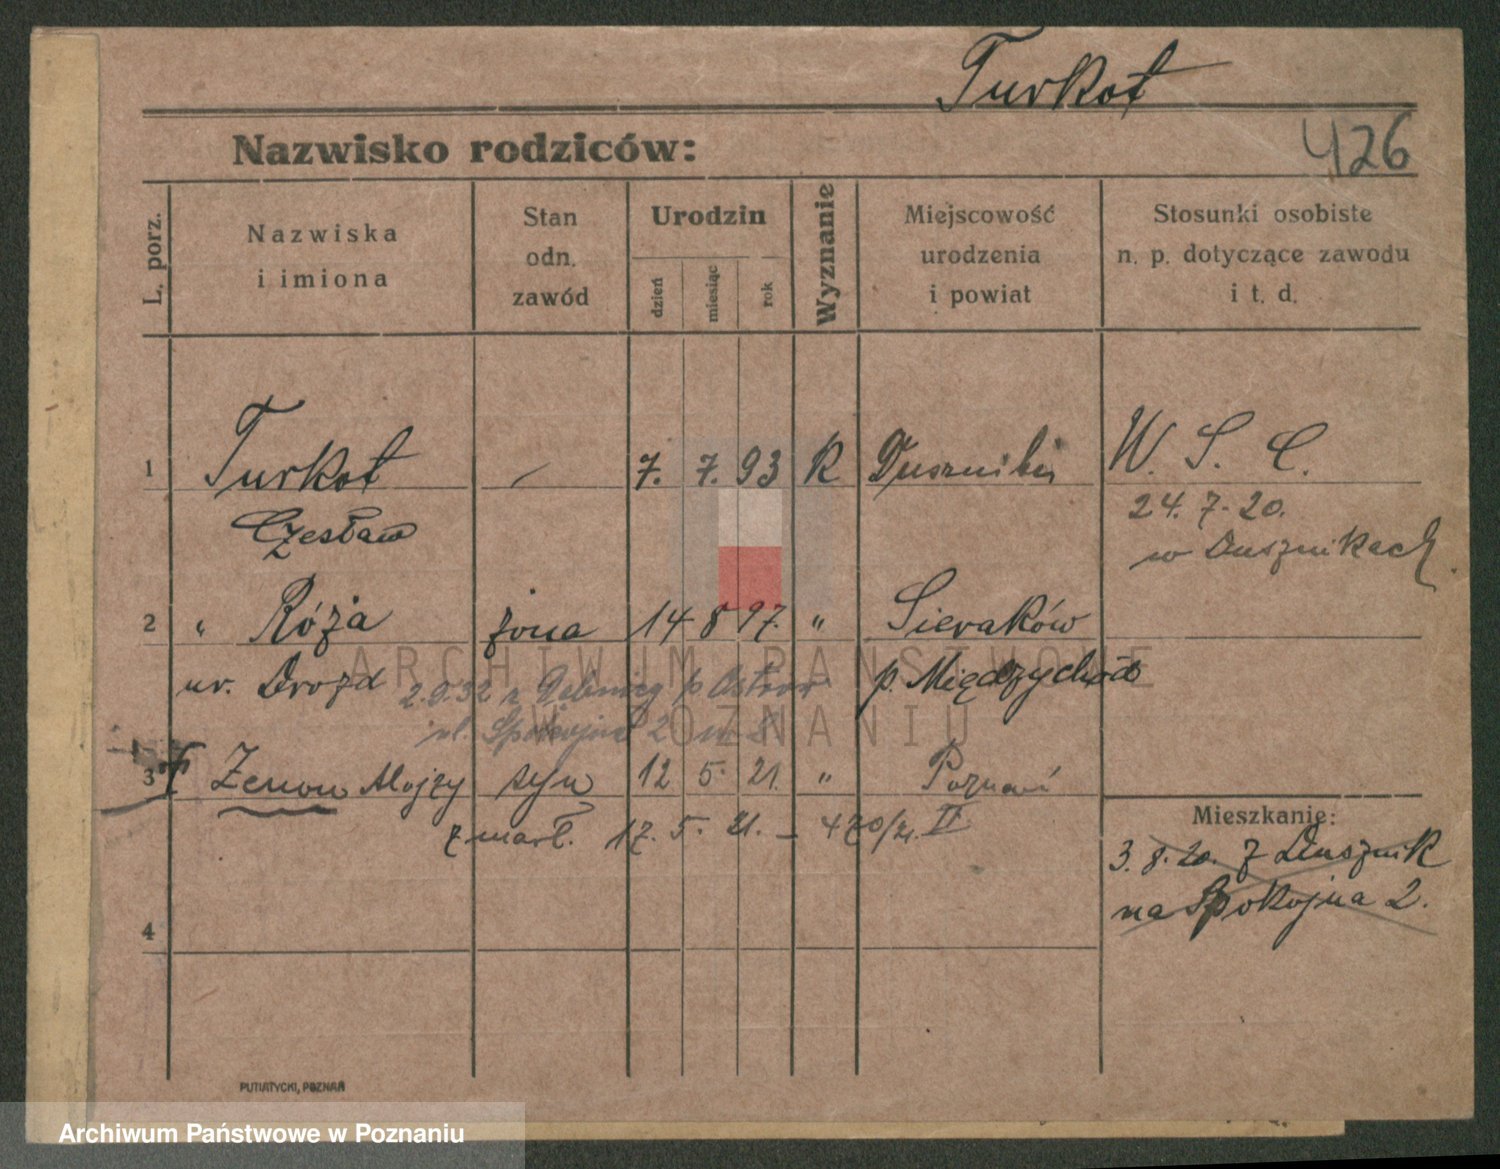 Turkot
Nazwisko rodziców:
426
L. porz.
Nazwiska
i imiona
Stan
odn.
zawód
Urodzin
dzień
miesiąc
rok
Wyznanie
Miejscowość
urodzenia
i powiat
Stosunki osobiste
n. p. dotyczące zawodu
i t. d.
1 Turkot — 7. 7. 93 R Duszniki W. S. C.
Czesław
24. 7. 20.
w Dusznikach.
2 " Róża żona 14 8 97. " Sieraków
ur. Drozd
p. Międzychód
2.9.32 z p Ostrów
ul. Spokojna 2 m 8
ARCHIWUM PAŃSTWOWE
W POZNANIU
3 Zenon Alojzy syn 12 5. 21. " Poznań
zmarł. 17. 5. 21. – 470/21. II
Mieszkanie:
3. 8. 20. z Dusznik
na Spokojna 2.
4
PUTIATYCKI, POZNAŃ
Archiwum Państwowe w Poznaniu